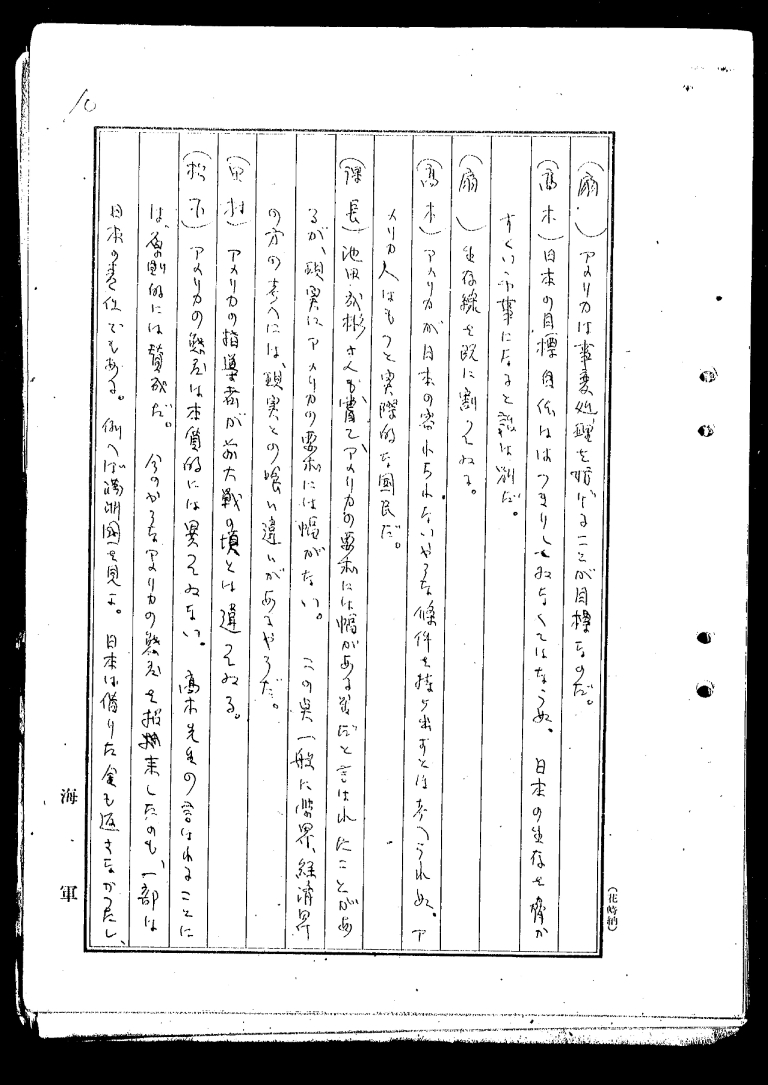 10
(扇 ) アメリカは事変処理を妨げることが目標なのだ。
(高木) 日本の目標自体ははつきりしてゐなくてはならぬ。 日本の生存を脅か
すといふ事になると話は別だ。
(扇 ) 生存線を既に割つてゐる。
(高木) アメリカが日本の容れられないやうな條件を持ち出すとは考へられぬ。ア
メリカ人はもつと実際的な國民だ。
(課長) 池田成彬さんも嘗て、アメリカの要求には幅がある筈だと言はれたことがあ
るが、現実にアメリカの要求には幅がない。 この点一般に学界、経済界
の方の考へには、現実との喰い違いがあるやうだ。
( 村) アメリカの指導者が前大戦の頃とは違つてゐる。
(松下) アメリカの態度は本質的には異つてゐない。 高木先生の言はれることに
は、原則的には賛成だ。 今のやうなアメリカの態度を招来したのも、一部は
日本の責任でもある。 例へば満洲國を見よ。 日本は借りた金も返さなかつたし、
海 軍
(花崎納)